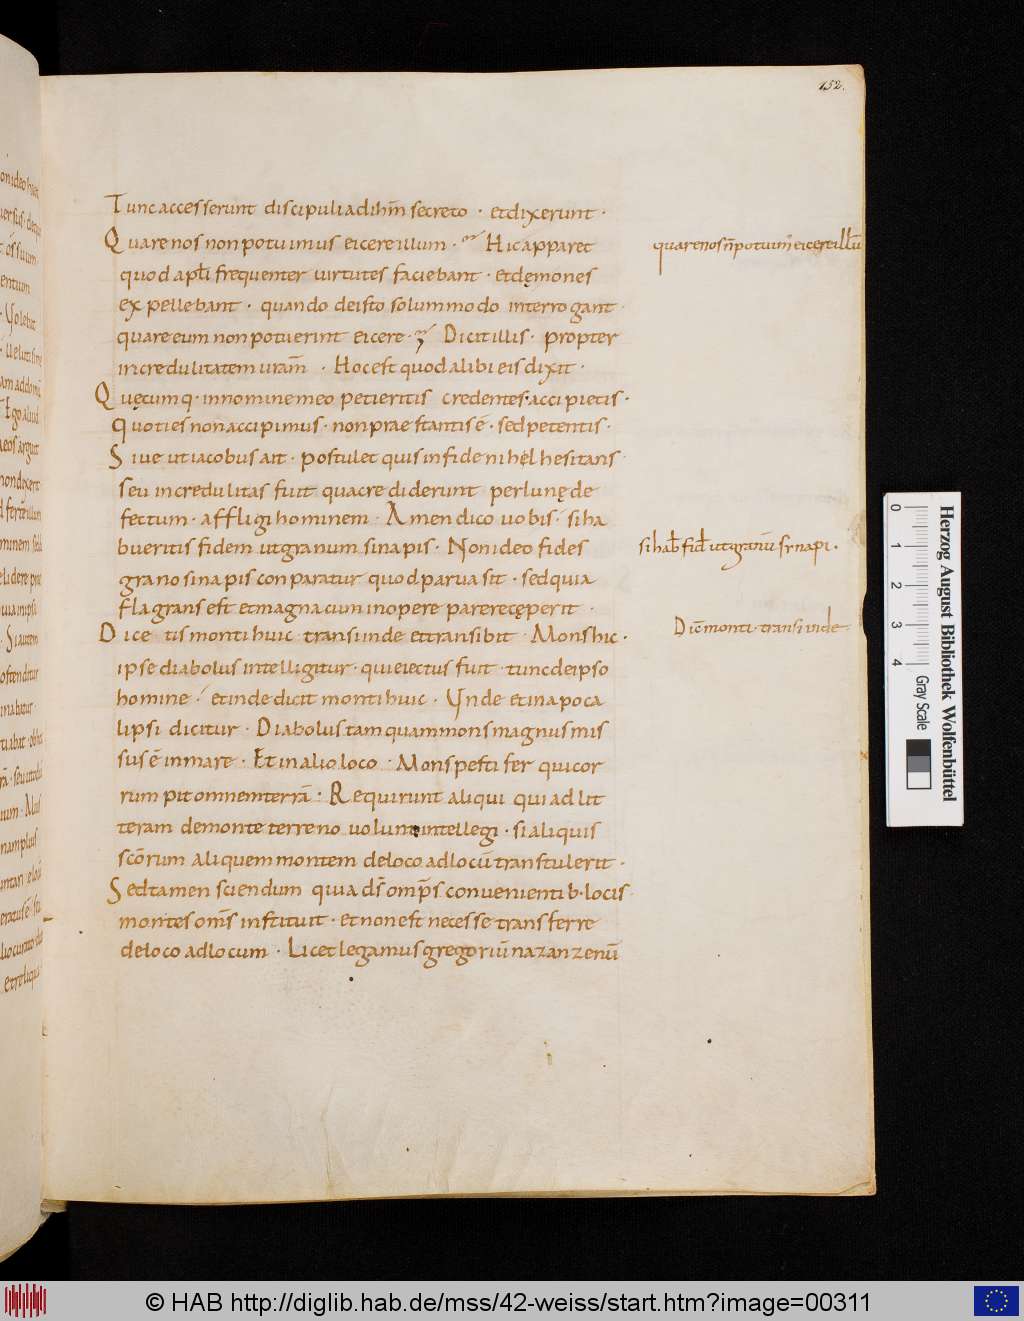 152.
Tunc accesserunt discipuli ad ihm̄ secreto · et dixerunt ·
Quare nos non potuimus eicere illum · Hic apparet
quod apłi frequenter uirtutes faciebant · et demones
expellebant · quando de isto solummodo interrogant ·
quare eum non potuerint eicere · Dicit illis · propter
incredulitatem uram̄ · Hoc est quod alibi eis dixit ·
Quęcumq · in nomine meo petieritis credentes · accipietis ·
quoties non accipimus · non praestantis ē · sed petentis ·
Siue ut iacobus ait · postulet quis in fide nihel hesitans ·
seu incredulitas fuit qua crediderunt per lunę de
fectum · affligi hominem · Amen dico uobis · si ha
bueritis fidem ut granum sinapis · Non ideo fides
grano sinapis conparatur quod parua sit · sed quia
flagrans est et magna cum in opere parere cęperit ·
Dicetis monti huic transi inde et transibit · Mons hic ·
ipse diabolus intelligitur · qui eiectus fuit · tunc de ipso
homine · et inde dicit monti huic · Unde et in apoca
lipsi dicitur · Diabolus tamquam mons magnus mis
sus ē in mare · Et in alio loco · Mons pestifer qui cor
rumpit omnem terrā · Requirunt aliqui qui ad lit
teram de monte terreno uolunt intellegi · si aliquis
scōrum aliquem montem de loco ad locū transtulerit ·
Sed tamen sciendum quia ds̄ omp̄s conuenientib · locis
montes om̄s instituit · et non est necesse transferre
de loco ad locum · Licet legamus gregoriū nazanzenū
quare nos n̄ potuim̄ eicere illū
si hab̄ fid̄ ut granū synapi ·
Dic̄ monti · transi inde
0
1
2
3
4
Herzog August Bibliothek Wolfenbüttel
Gray Scale
© HAB http://diglib.hab.de/mss/42-weiss/start.htm?image=00311